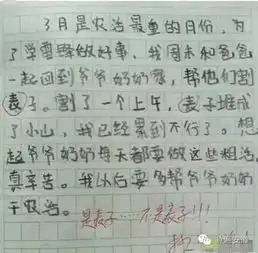 3月是农活最重的月份，为
了学雷锋做好事，我周末和爸爸
一起回到爷爷奶奶家，帮他们割
表子。割了一个上午，表子堆成
了小山，我已经累到不行了。想
起爷爷奶奶每天都要做这些粗活，
真辛苦。我以后要多帮爷爷奶奶
干农活。
是麦子……不是表子！！！